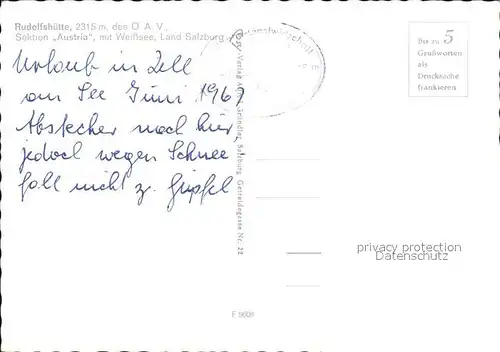 Rudolfshütte, 2315 m, des Ö. A. V.,
Sektion „Austria", mit Weißsee, Land Salzburg
Urlaub in Zell
am See Juni 1967
Abstecher nach hier,
jedoch wegen Schnee
fall nicht z. Gipfel
Verlag Gründler, Salzburg, Getreidegasse Nr. 22
Bis zu 5
Grußworten
als
Drucksache
frankieren
privacy protection
Datenschutz